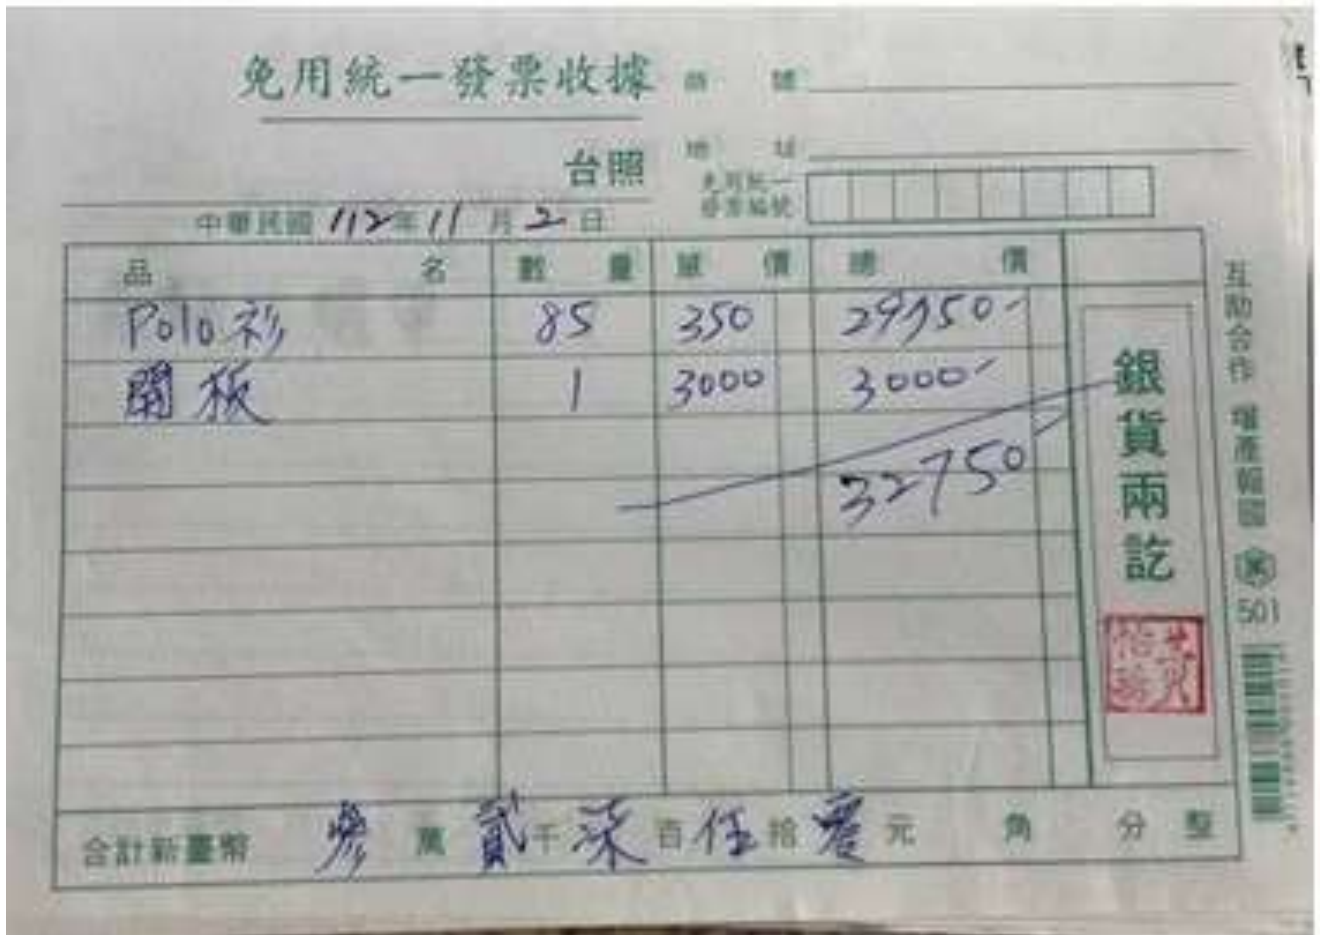 免用統一發票收據 商號
台照 地址
免用統一
發票編號
中華民國 112年 11月 2日
品名 數量 單價 總價
Polo衫 85 350 29750-
開板 1 3000 3000-
32750
合計新臺幣 參萬 貳千 柒百 伍拾 零元 角 分 整
銀貨兩訖
互助合作 增產報國
501